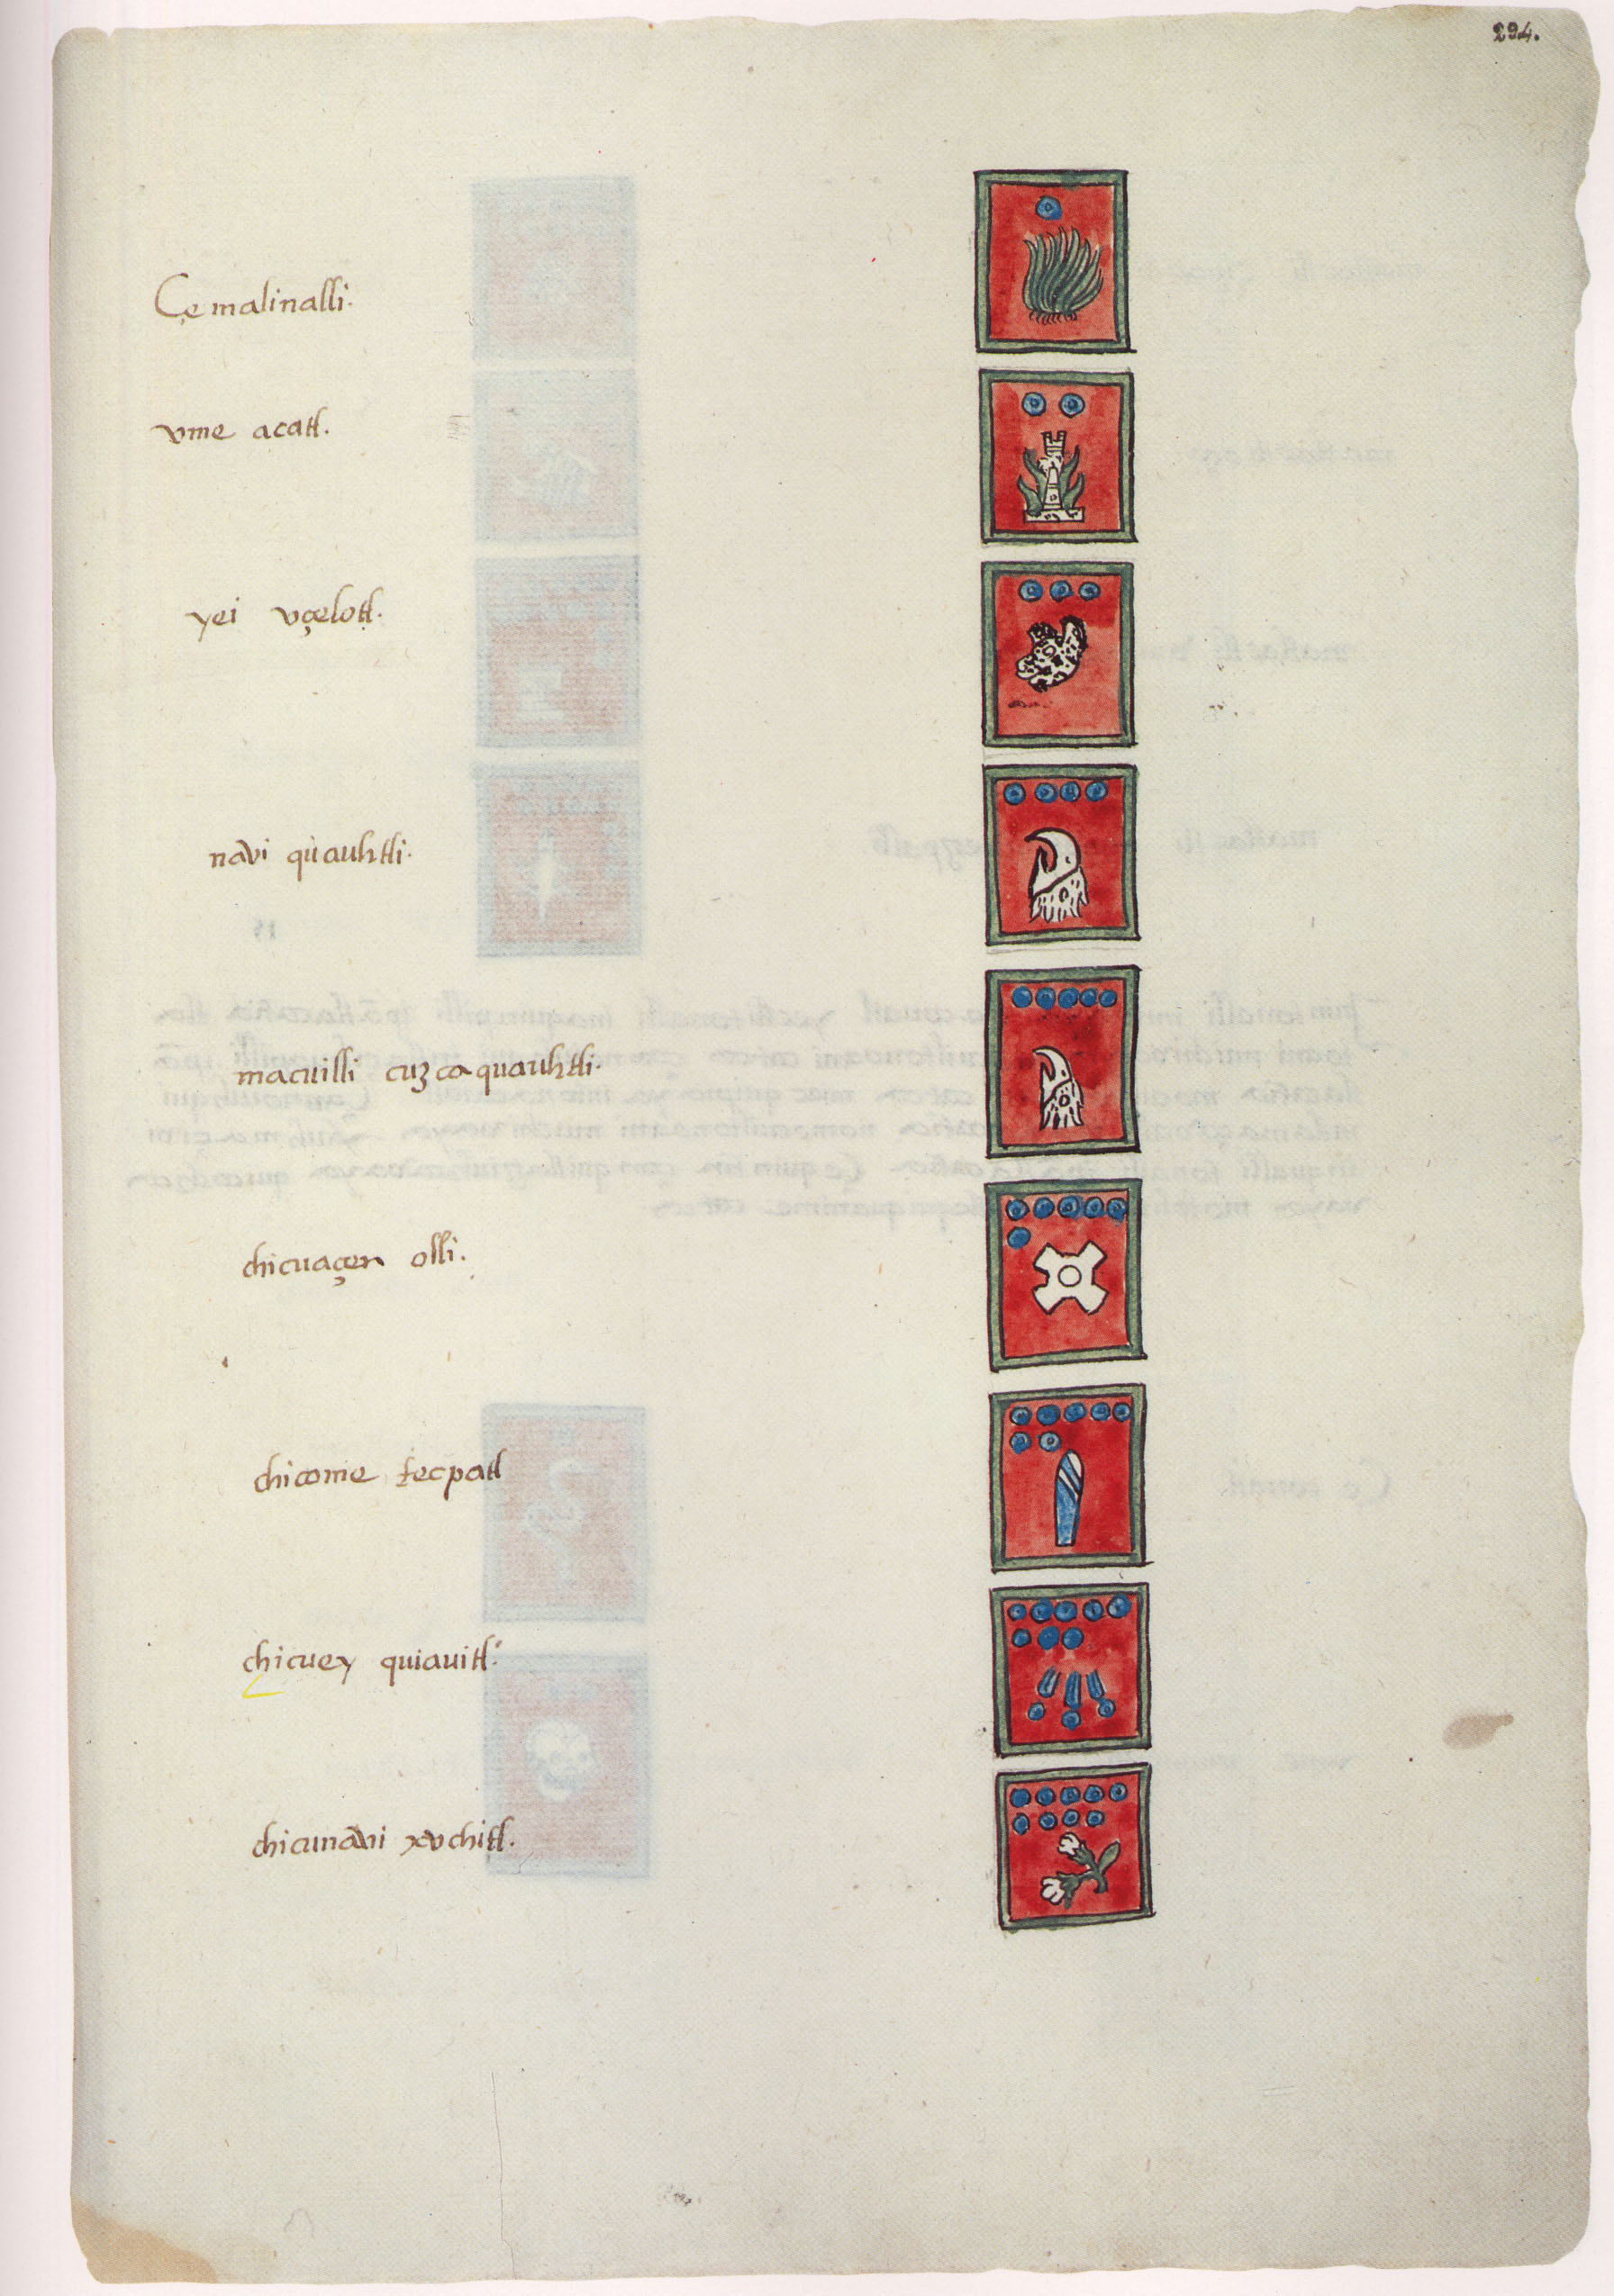 294.
Çe malinalli.
vme acatl.
yei vçelotl.
navi quauhtli.
macuilli cuzcaquauhtli.
chicuaçen olli.
chicome tecpatl
chicuey quiauitl.
chicunavi xvchitl.